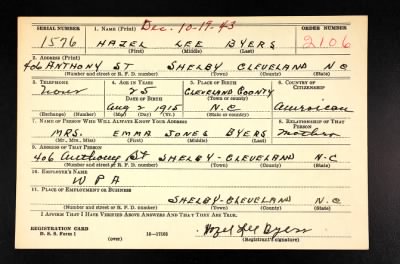 Dec. 10-19-43
SERIAL NUMBER 1. NAME (Print) ORDER NUMBER
1576 HAZEL LEE BYERS 2106
(First) (Middle) (Last)
2. ADDRESS (Print)
406 ANTHONY ST SHELBY CLEVELAND N C
(Number and street or R. F. D. number) (Town) (County) (State)
3. TELEPHONE 4. AGE IN YEARS 5. PLACE OF BIRTH 6. COUNTRY OF CITIZENSHIP
none 25 CLEVELAND COUNTY
DATE OF BIRTH (Town or county)
Aug 2 1915 N/C American
(Exchange) (No.) (Mo.) (Day) (Yr.) (State or country)
7. NAME OF PERSON WHO WILL ALWAYS KNOW YOUR ADDRESS 8. RELATIONSHIP OF THAT PERSON
MRS. EMMA JONES BYERS Mother
(Mr., Mrs., Miss) (First) (Middle) (Last)
9. ADDRESS OF THAT PERSON
406 Anthony St SHELBY-CLEVELAND N-C
(Number and street or R. F. D. number) (Town) (County) (State)
10. EMPLOYER'S NAME
W P A
11. PLACE OF EMPLOYMENT OR BUSINESS
SHELBY-CLEVELAND N.C
(Number and street or R. F. D. number) (Town) (County) (State)
I AFFIRM THAT I HAVE VERIFIED ABOVE ANSWERS AND THAT THEY ARE TRUE.
REGISTRATION CARD
D. S. S. Form 1 16-17105 Hazel Lee Byers
(Registrant's signature)